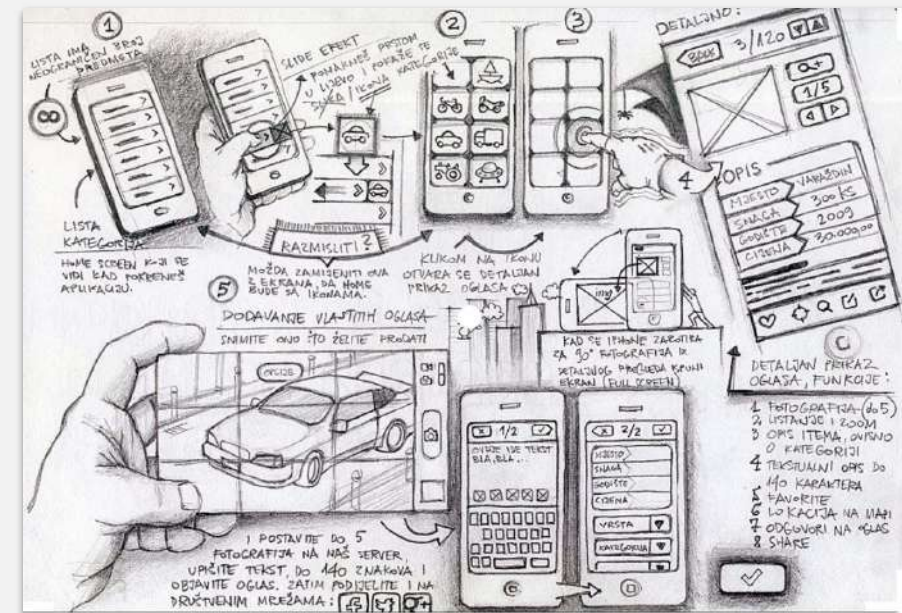 1
LISTA IMA
NEOGRANIČEN BROJ
PREDMETA
∞
LISTA
KATEGORIJA
HOME SCREEN KOJI SE
VIDI KAD POKRENEŠ
APLIKACIJU.
SLIDE EFEKT
POMAKNEŠ PRSTOM
U LIJEVO I POKAŽE SE
SLIKA / IKONA KATEGORIJE
RAZMISLITI?
MOŽDA ZAMIJENITI OVA
2 EKRANA, DA HOME
BUDE SA IKONAMA.
2
3
KLIKOM NA IKONU
OTVARA SE DETALJAN
PRIKAZ OGLASA
4
DETALJNO:
BACK 3/120
1/5
OPIS
MJESTO VARAŽDIN
SNAGA 300 KS
GODIŠTE 2009
CIJENA 30.000,00
img
KAD SE IPHONE ZAROTIRA
ZA 90° FOTOGRAFIJA IZ
DETALJNOG PREGLEDA ISPUNI
EKRAN (FULL SCREEN)
DETALJAN PRIKAZ
OGLASA, FUNKCIJE:
1 FOTOGRAFIJA (do 5)
2 LISTANJE I ZOOM
3 OPIS ITEMA, OVISNO
O KATEGORIJI
4 TEKSTUALNI OPIS DO
140 KARAKTERA
5 FAVORITE
6 LOKACIJA NA MAPI
7 ODGOVORI NA OGLAS
8 SHARE
5
DODAVANJE VLASTITIH OGLASA
SNIMITE ONO ŠTO ŽELITE PRODATI
OPCIJE
I POSTAVITE DO 5
FOTOGRAFIJA NA NAŠ SERVER,
UPIŠITE TEKST, DO 140 ZNAKOVA I
OBJAVITE OGLAS. ZATIM PODIJELITE I NA
DRUŠTVENIM MREŽAMA:
X 1/2
OVDJE IDE TEKST
BLA, BLA...
X 2/2
MJESTO
SNAGA
GODIŠTE
CIJENA
VRSTA
KATEGORIJA